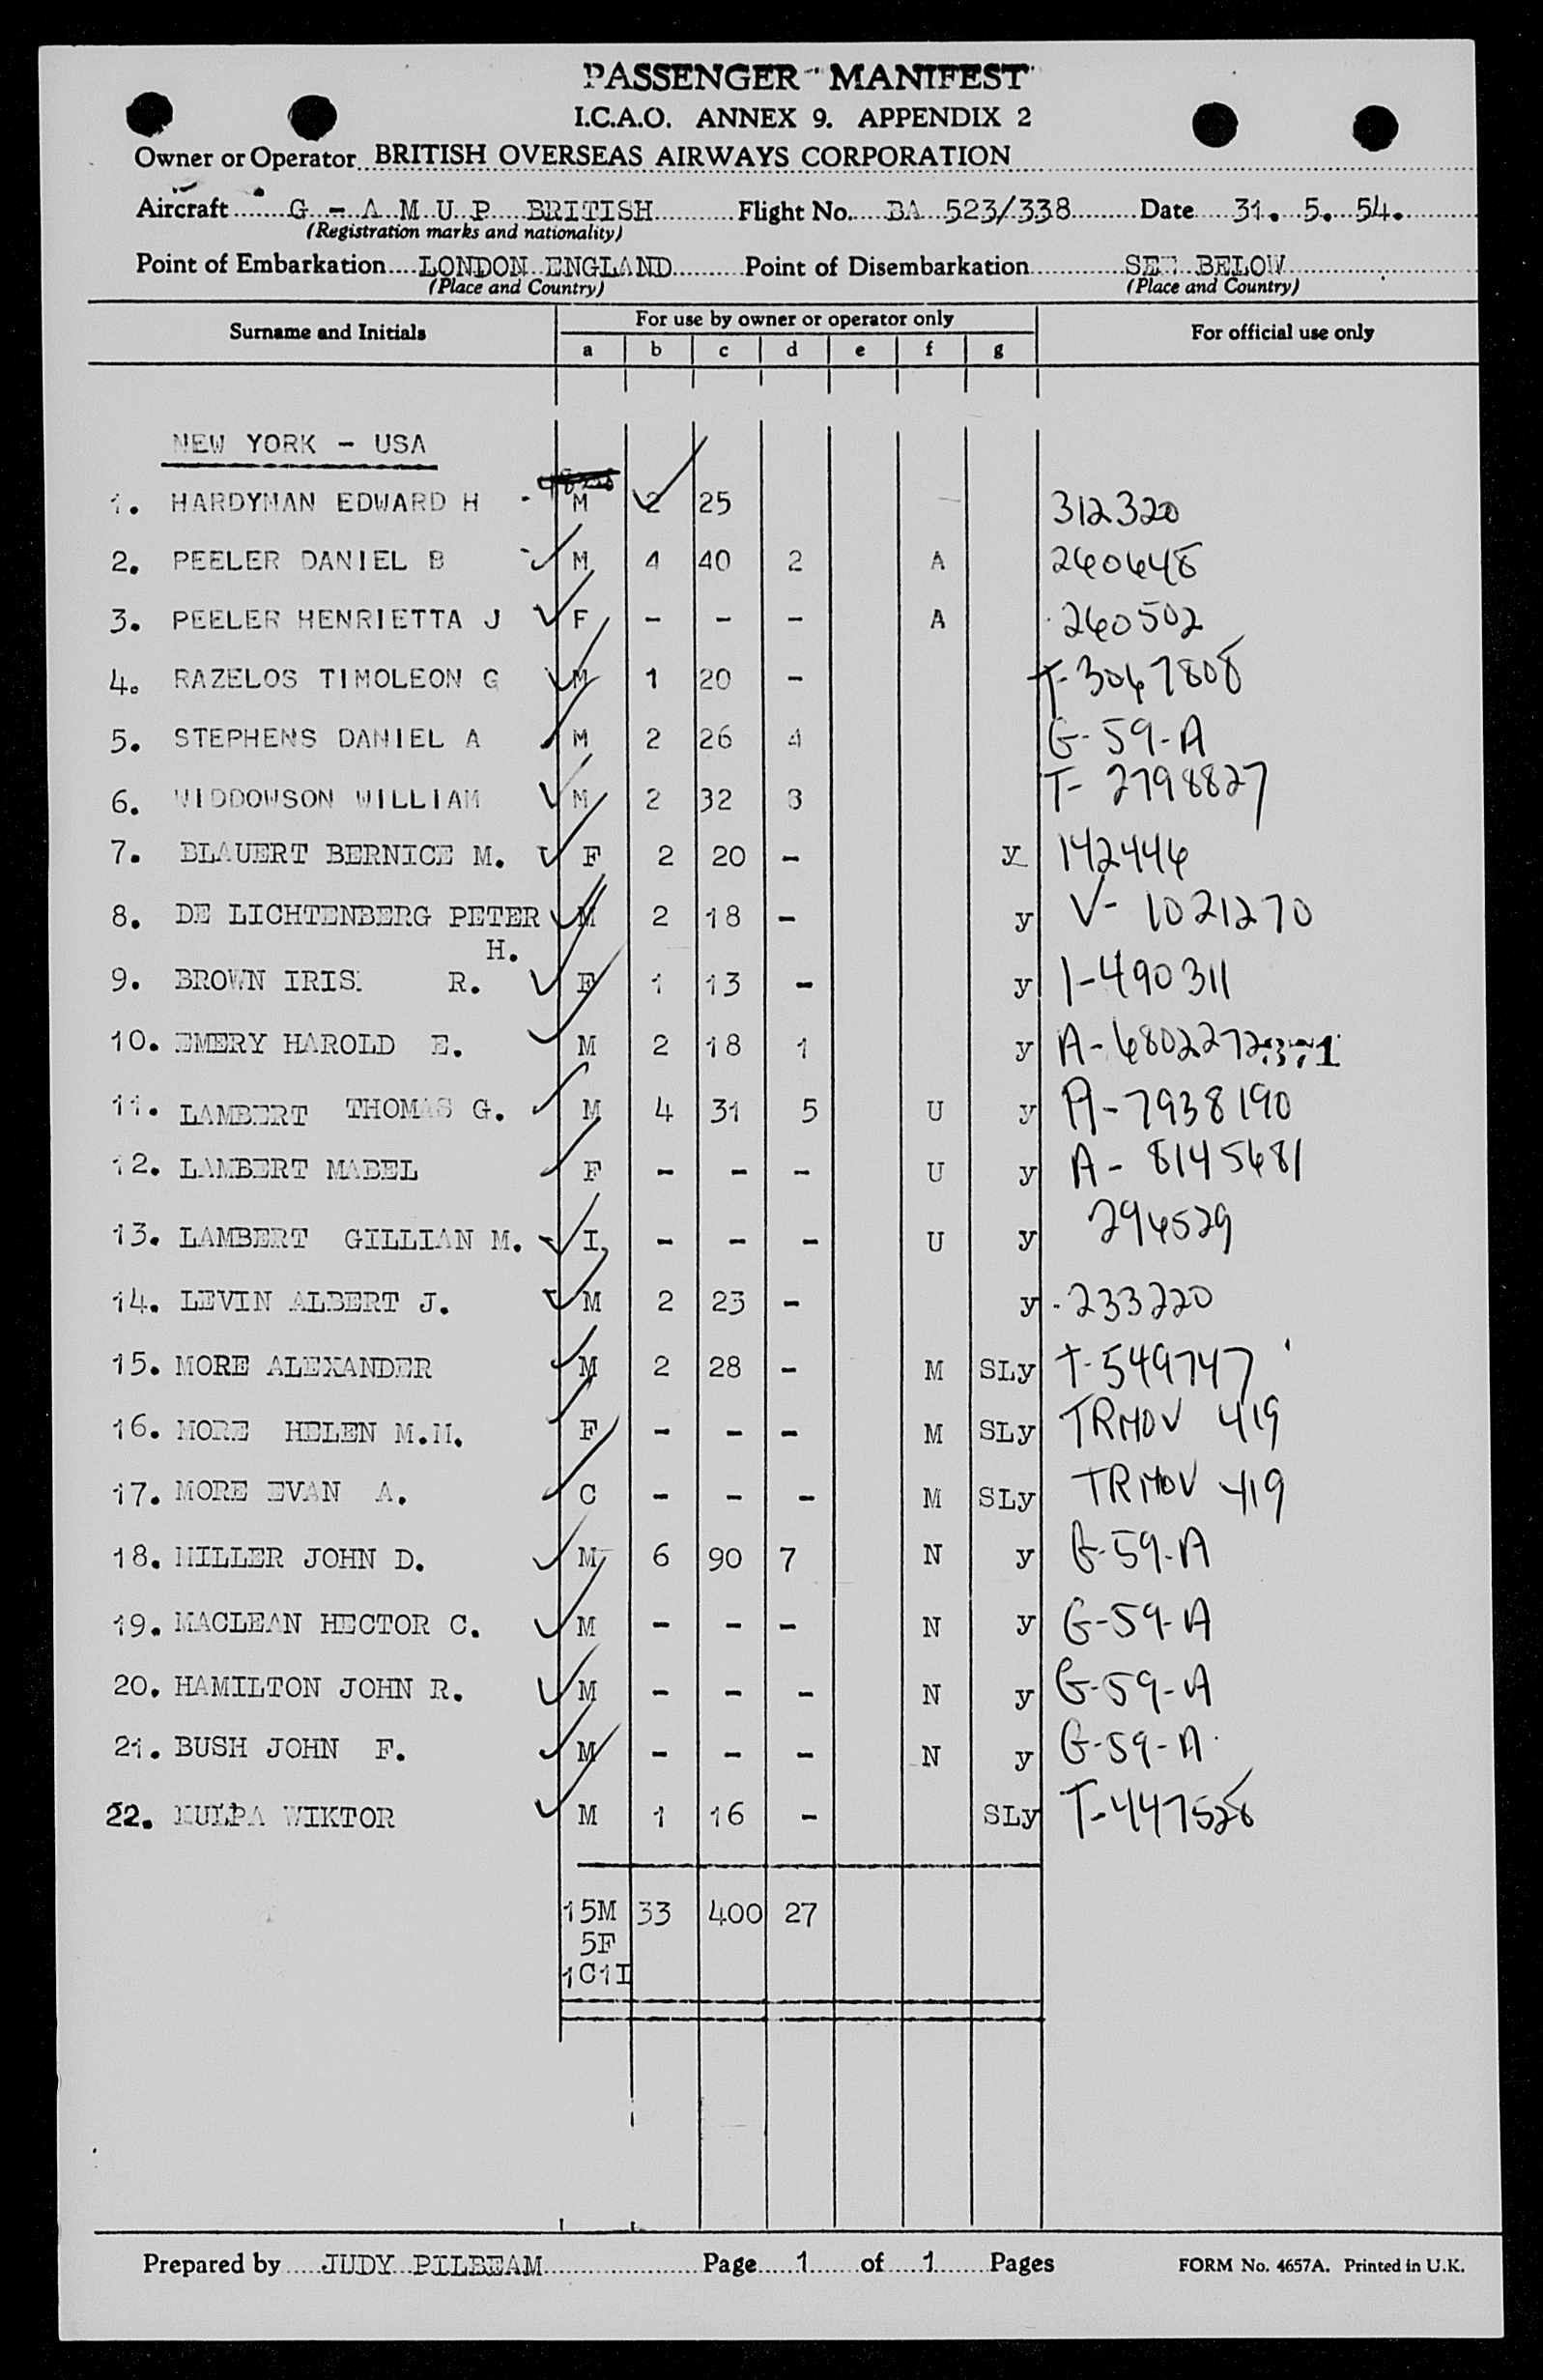 PASSENGER MANIFEST
I.C.A.O. ANNEX 9. APPENDIX 2
Owner or Operator BRITISH OVERSEAS AIRWAYS CORPORATION
Aircraft G - A M U P BRITISH Flight No. BA 523/338 Date 31. 5. 54.
(Registration marks and nationality)
Point of Embarkation LONDON ENGLAND Point of Disembarkation SEE BELOW
(Place and Country) (Place and Country)
Surname and Initials For use by owner or operator only For official use only
a b c d e f g
NEW YORK - USA
1. HARDYMAN EDWARD H M 2 25 312320
2. PEELER DANIEL B M 4 40 2 A 260648
3. PEELER HENRIETTA J F - - - A 260502
4. RAZELOS TIMOLEON G M 1 20 - T-3067808
5. STEPHENS DANIEL A M 2 26 4 G-59-A
6. WIDDOWSON WILLIAM M 2 32 8 T-2798827
7. BLAUERT BERNICE M. F 2 20 - y 142446
8. DE LICHTENBERG PETER M 2 18 - y V-1021270
H.
9. BROWN IRIS R. F 1 13 - y 1-490311
10. EMERY HAROLD E. M 2 18 1 y A-6802272
11. LAMBERT THOMAS G. M 4 31 5 U y A-7938190
12. LAMBERT MABEL F - - - U y A-8145681
13. LAMBERT GILLIAN M. I - - - U y 296529
14. LEVIN ALBERT J. M 2 23 - y 233220
15. MORE ALEXANDER M 2 28 - M SLy T-549747
16. MORE HELEN M.M. F - - - M SLy TRMOV 419
17. MORE EVAN A. C - - - M SLy TRMOV 419
18. MILLER JOHN D. M 6 90 7 N y G-59-A
19. MACLEAN HECTOR C. M - - - N y G-59-A
20. HAMILTON JOHN R. M - - - N y G-59-A
21. BUSH JOHN F. M - - - N y G-59-A
22. KULPA WIKTOR M 1 16 - SLy T-447528
15M 33 400 27
5F
1C1I
Prepared by JUDY PILBEAM Page 1 of 1 Pages FORM No. 4657A. Printed in U.K.